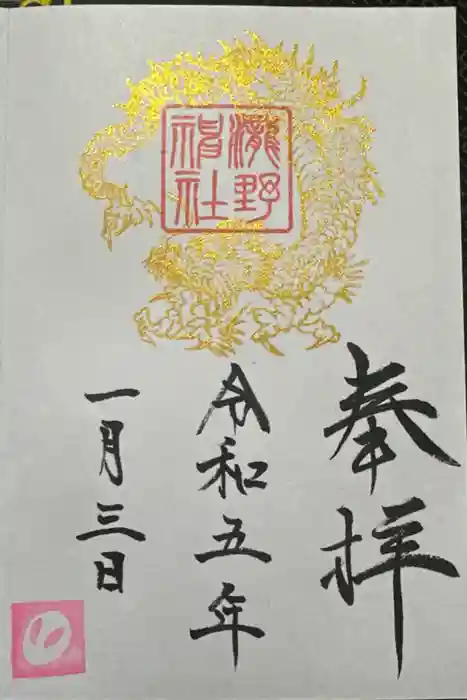 奉拝
令和五年
一月三日
瀧野
神社